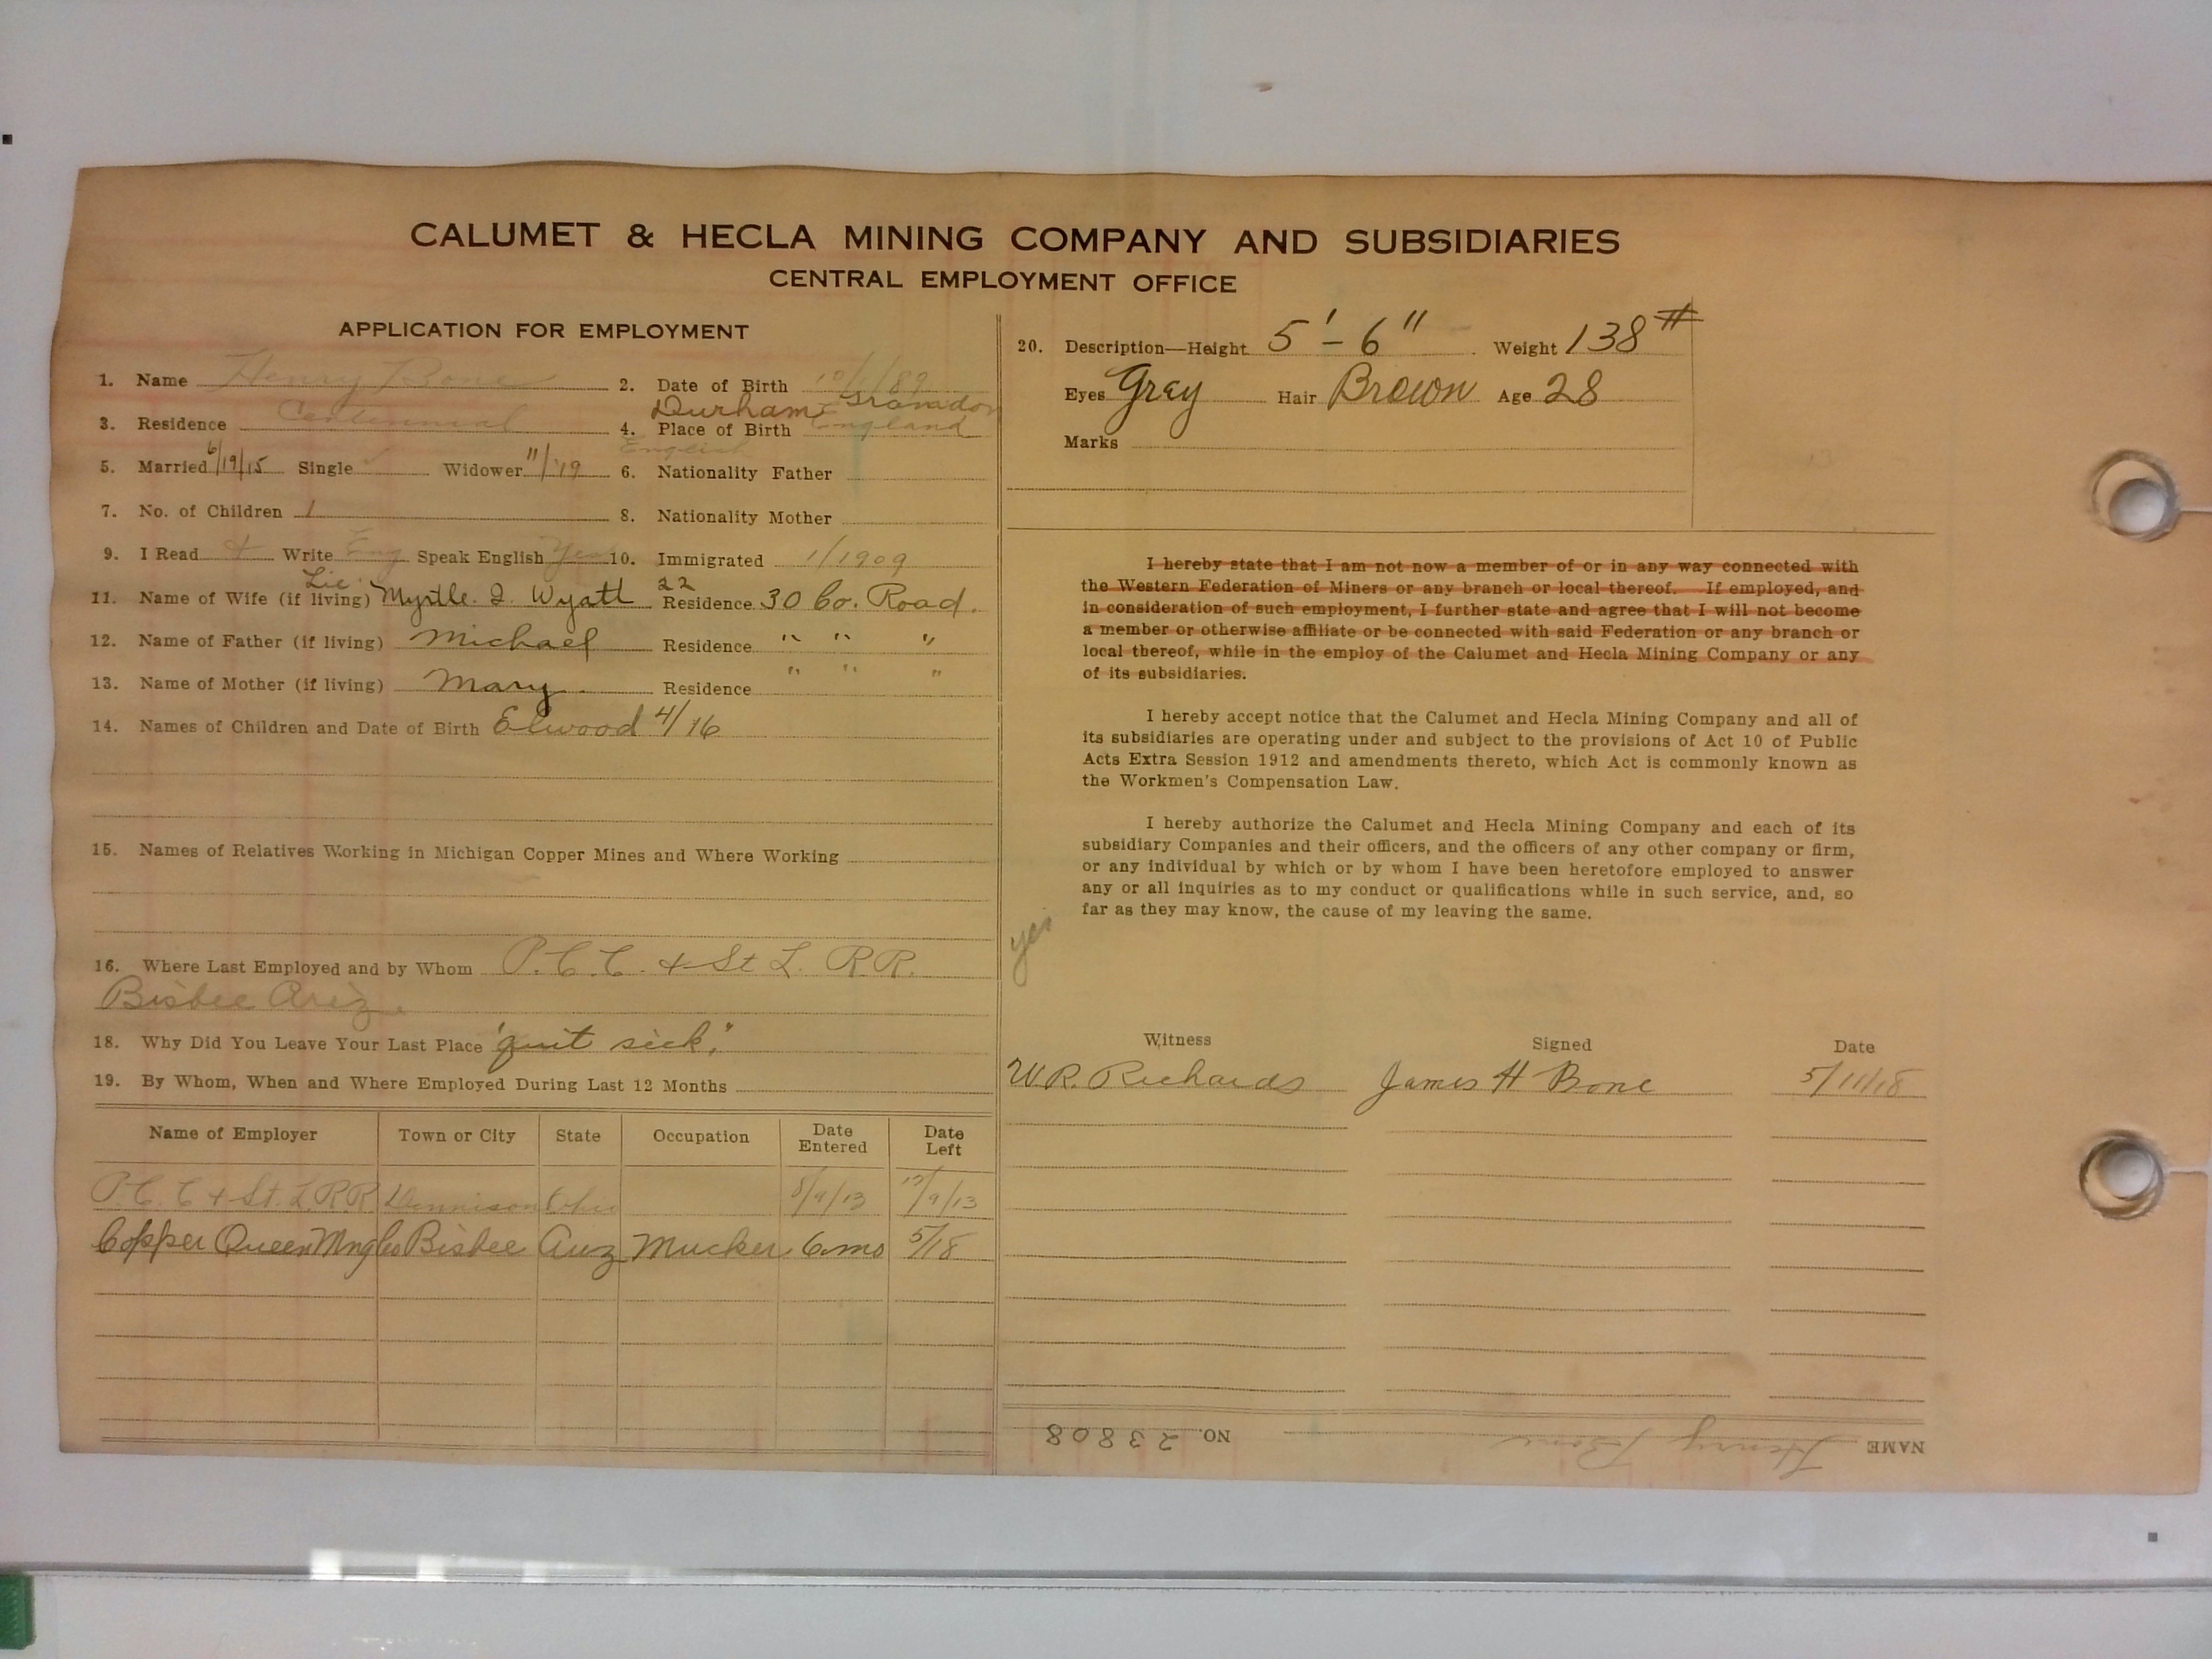 CALUMET & HECLA MINING COMPANY AND SUBSIDIARIES
CENTRAL EMPLOYMENT OFFICE
APPLICATION FOR EMPLOYMENT
1. Name Henry Bone 2. Date of Birth 10/1/89
Durham
3. Residence Centennial 4. Place of Birth England
English
5. Married 6/19/15 Single Widower 11/'19 6. Nationality Father
7. No. of Children 1 8. Nationality Mother
9. I Read + Write Eng Speak English Yes 10. Immigrated 1/1909
Lic. 22
11. Name of Wife (if living) Myrtle. I. Wyatt Residence 30 Co. Road.
12. Name of Father (if living) Michael Residence " " "
13. Name of Mother (if living) Mary Residence " " "
14. Names of Children and Date of Birth Elwood 4/16
15. Names of Relatives Working in Michigan Copper Mines and Where Working
16. Where Last Employed and by Whom P.C.C. + St L. R.R.
Bisbee Ariz.
18. Why Did You Leave Your Last Place "quit sick."
19. By Whom, When and Where Employed During Last 12 Months
Name of Employer Town or City State Occupation Date Entered Date Left
P.C. C + St. L.R.R. Dennison Ohio 8/9/13 12/9/13
Copper Queen Mng Co Bisbee Ariz Mucker 6 mo 5/18
20. Description—Height 5'-6" Weight 138#
Eyes Gray Hair Brown Age 28
Marks
I hereby state that I am not now a member of or in any way connected with
the Western Federation of Miners or any branch or local thereof. If employed, and
in consideration of such employment, I further state and agree that I will not become
a member or otherwise affiliate or be connected with said Federation or any branch or
local thereof, while in the employ of the Calumet and Hecla Mining Company or any
of its subsidiaries.
I hereby accept notice that the Calumet and Hecla Mining Company and all of
its subsidiaries are operating under and subject to the provisions of Act 10 of Public
Acts Extra Session 1912 and amendments thereto, which Act is commonly known as
the Workmen's Compensation Law.
I hereby authorize the Calumet and Hecla Mining Company and each of its
subsidiary Companies and their officers, and the officers of any other company or firm,
or any individual by which or by whom I have been heretofore employed to answer
any or all inquiries as to my conduct or qualifications while in such service, and, so
far as they may know, the cause of my leaving the same.
yes
Witness Signed Date
W.R. Richards James H Bone 5/11/18
NAME Henry Bone NO. 23808